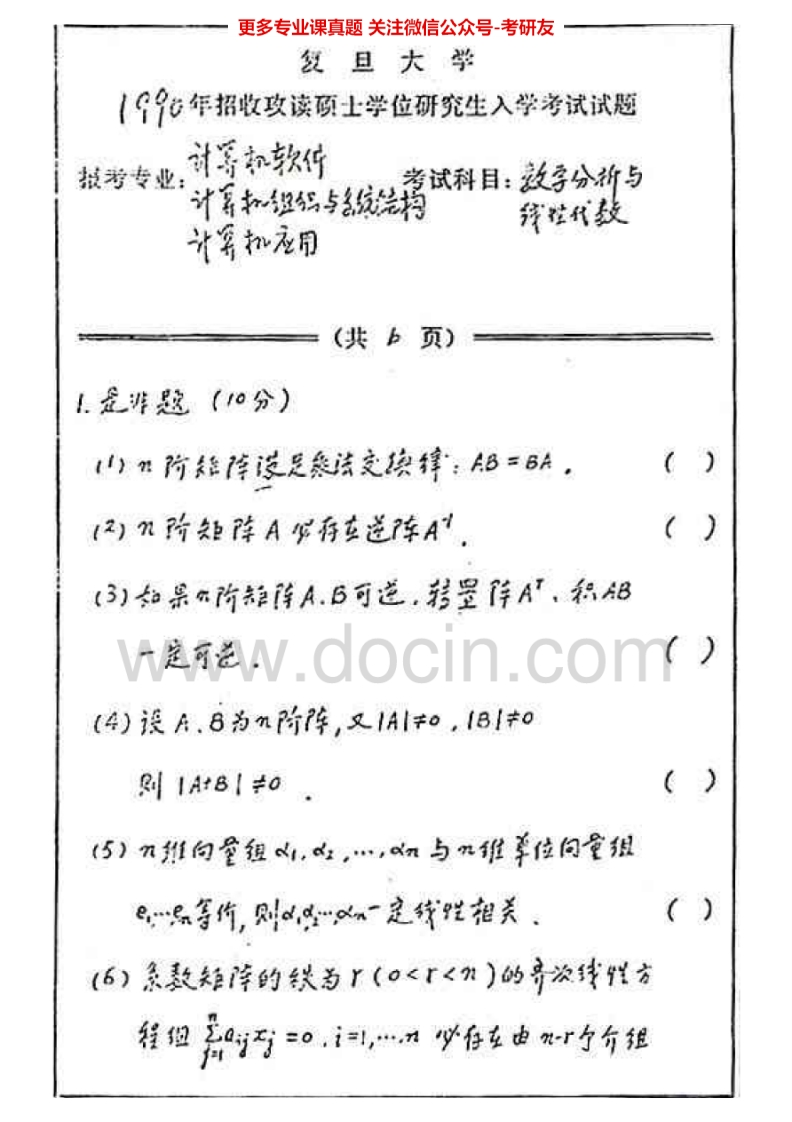 更多专业课真题 关注微信公众号-考研友
复旦大学
1990年招收攻读硕士学位研究生入学考试试题
报考专业:计算机软件
计算机组织与系统结构
计算机应用
考试科目:数学分析与
线性代数
(共 6 页)
1. 是非题 (10分)
(1) n阶矩阵满足乘法交换律:AB=BA. ( )
(2) n阶矩阵A必存在逆阵A⁻¹. ( )
(3) 如果n阶矩阵A、B可逆,转置阵Aᵀ、积AB
一定可逆. ( )
www.docin.com
(4) 设A、B为n阶阵,又|A|≠0,|B|≠0
则|A+B|≠0. ( )
(5) n维向量组α₁,α₂,…,αn与n维单位向量组
e₁…en等价,则α₁α₂…αn一定线性相关. ( )
(6) 系数矩阵的秩为r(0<r<n)的齐次线性方
程组 ∑ⁿⱼ₌₁aᵢⱼxⱼ=0,i=1,…n 必存在由n-r个介组